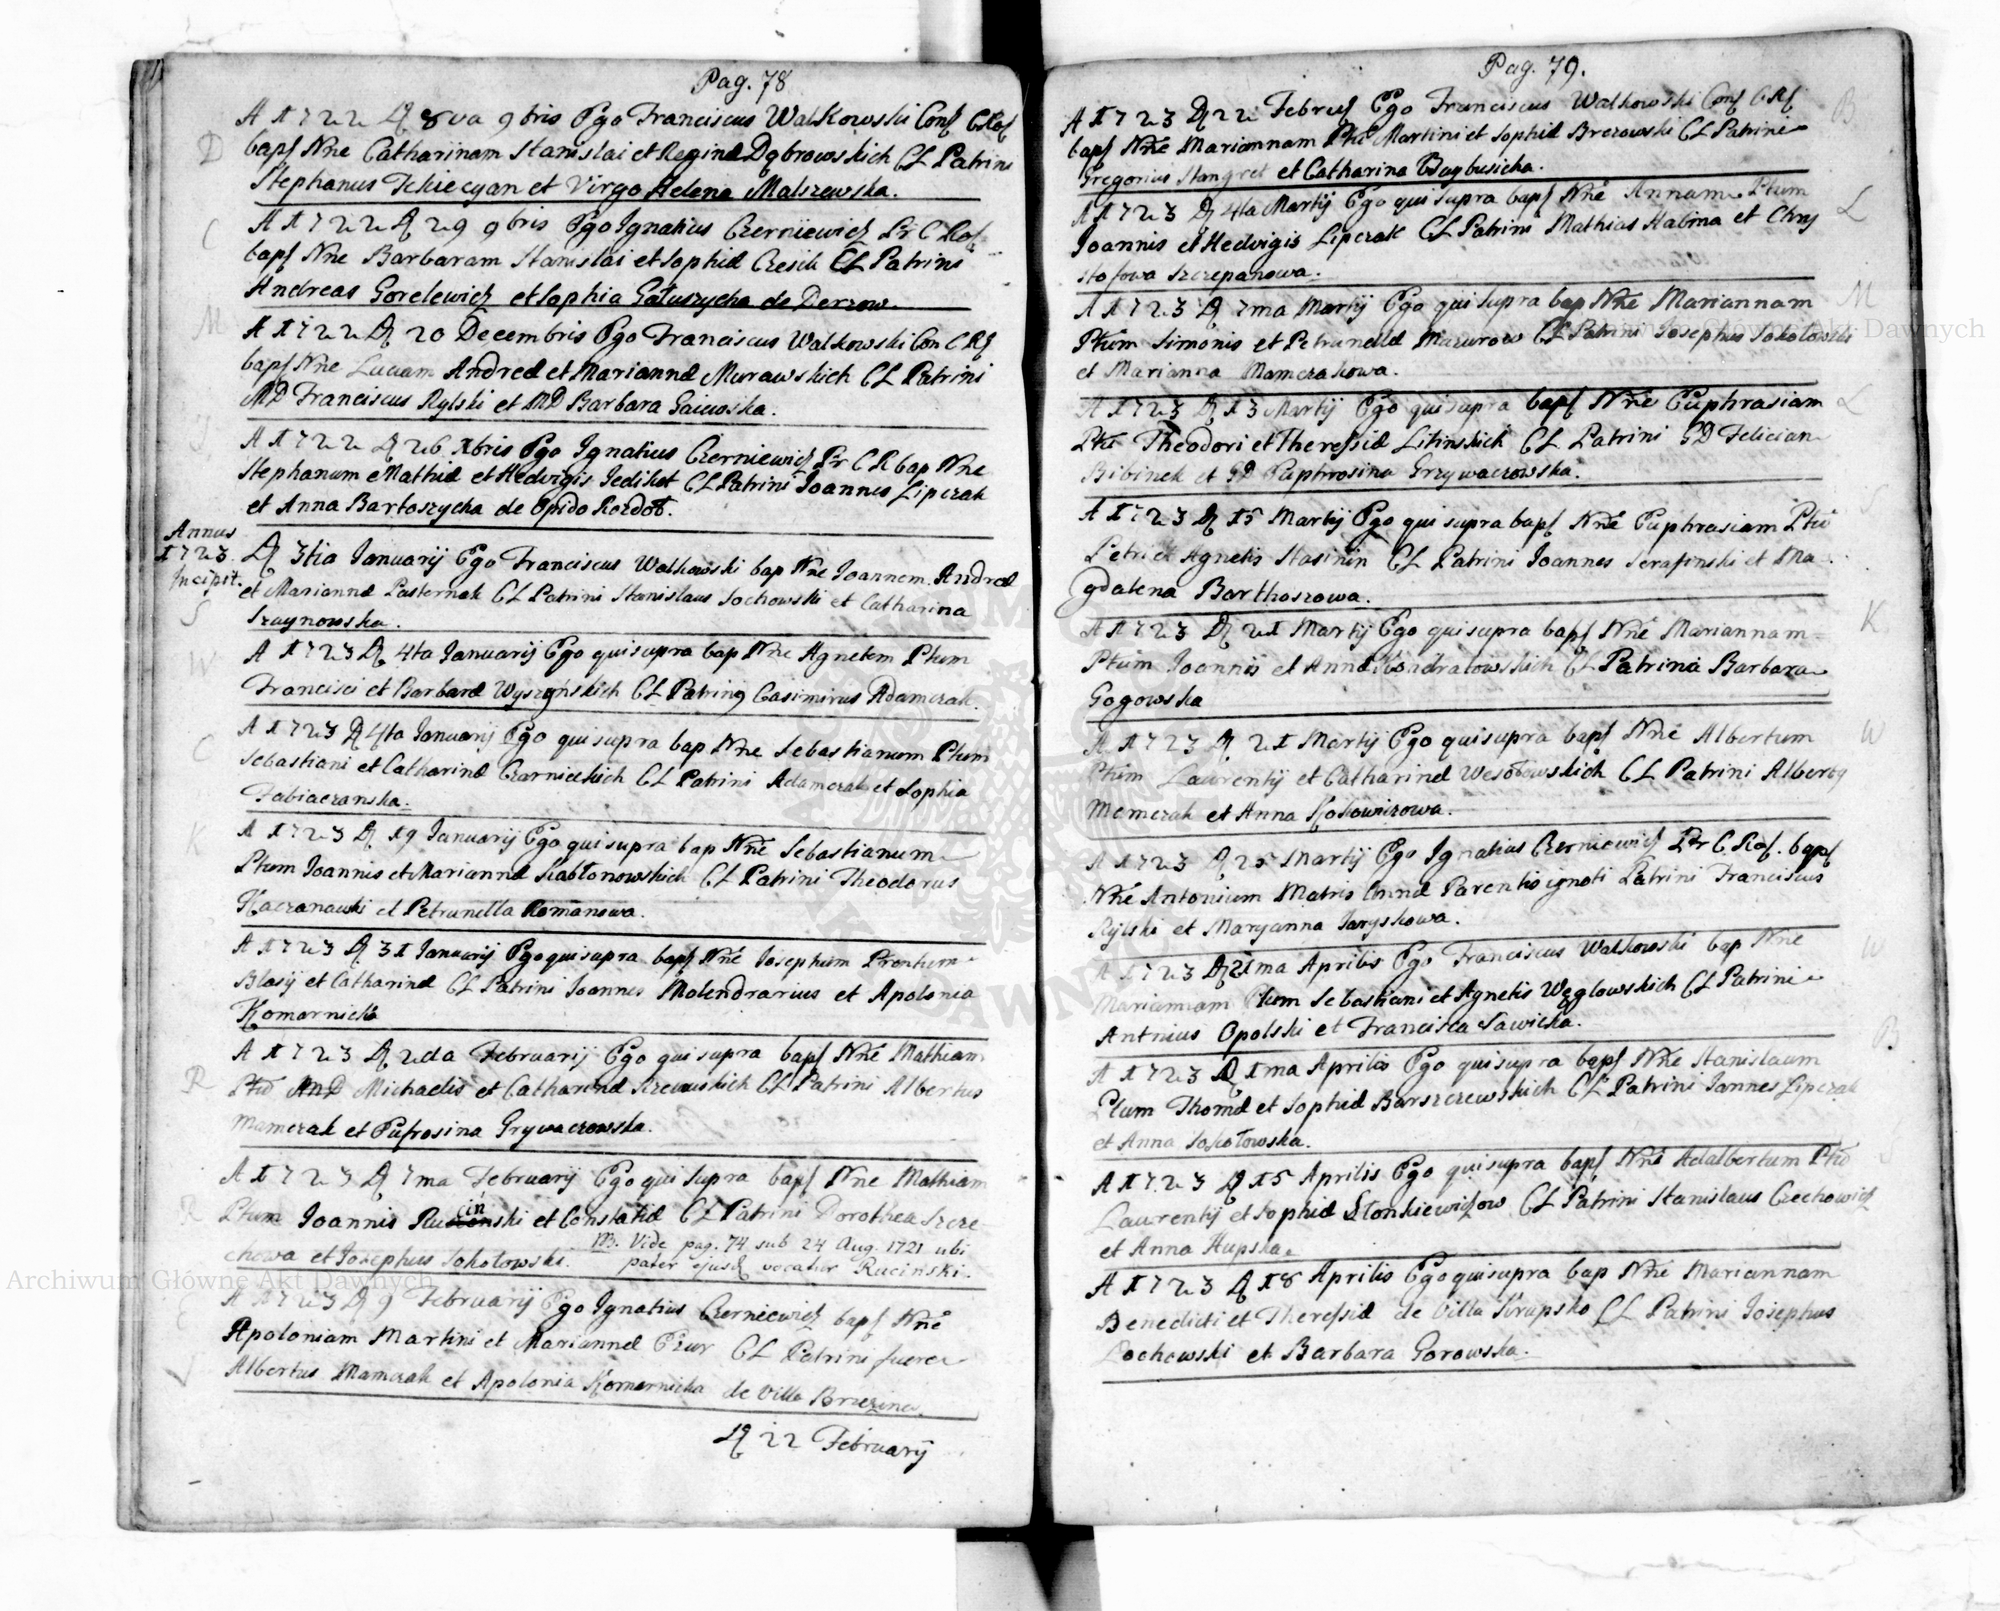 Pag. 78
A 1722 D 8va 9bris Ego Franciscus Walkowski Conf CRof
D
bapt Nne Catharinam Stanislai et Regina Dąbrowskich CL Patrini
Stephanus et Virgo Helena Malszewska.
C
A 1722 D 29 9bris Ego Ignatius Czerniewicz Pr C Rof
bapt Nne Barbaram Stanislai et Sophia CL Patrini
Andreas Gorelewicz et Sophia Gałuszycha de Derzow.
M
A 1722 D 20 Decembris Ego Franciscus Walkowski Con C Rf
bapt Nne Luciam Andrea et Marianna Murawskich CL Patrini
MD Franciscus Rylski et MD Barbara
J
A 1722 D 26 Xbris Ego Ignatius Czerniewicz Pr C R bap Nne
Stephanum Mathia et Hedvigis CL Patrini Joannes Lipczak
et Anna Bartoszycha de Opido Rozdoł.
Annus
1723
Incipit.
D 3tia Januarij Ego Franciscus Walkowski bap Nne Joannem Andrea
S
et Marianna Pasternak CL Patrini Stanislaus Sochowski et Catharina
W
A 1723 D 4ta Januarij Ego qui supra bap Nne Agnetem Ptum
Francisci et Barbara Wyszyńskich CL Patring Casimirus Adamczak.
C
A 1723 D 4ta Januarij Ego qui supra bap Nne Sebastianum Ptum
Sebastiani et Catharina Czarnieckich CL Patrini Adamczak et Sophia
Fabiaczanska.
K
A 1723 D 19 Januarij Ego qui supra bap Nne Sebastianum
Ptum Joannis et Marianna Kabłonowskich CL Patrini Theodorus
Kaczanowski et Petrunella Romanowa.
A 1723 D 31 Januarij Ego qui supra bapt Nne Josephum
Blasij et Catharina CL Patrini Joannes Molendrarius et Apolonia
Komarnicka
A 1723 D 2da Februarij Ego qui supra bapt Nne Mathiam
R
MD Michaelis et Catharina CL Patrini Albertus
Mamczak et Eufrosina Grywaczowska.
A 1723 D 7ma Februarij Ego qui supra bapt Nne Mathiam
cin
R
Ptum Joannis et Constatia CL Patrini Dorothea Szcze-
chowa et Josephus Sokołowski. NB. Vide pag. 74 sub 24 Aug. 1721 ubi
pater ejusd vocatur Raciński.
A 1723 D 9 Februarij Ego Ignatius Czerniewicz bapt Nne
Apoloniam Martini et Marianna CL Patrini fuere
Albertus Mamczak et Apolonia Komarnicka de Villa Brzezina.
D 22 Februarij
Pag. 79.
A 1723 D 22 Februarij Ego Franciscus Walkowski Conf C Rf
B
bapt Nne Mariannam Martini et Sophia Brzozowski CL Patrini
Gregorius Stangret et Catharina
A 1723 D 4ta Martij Ego qui supra bapt Nne Annam Ptum
L
Joannis et Hedvigis Lipczak CL Patrini Mathias Halina et Chry
stofowa Szczepanowa.
A 1723 D 7ma Martij Ego qui supra bap Nne Mariannam
M
Ptum Simonis et Petrunella Mazurow CL Patrini Josephus Sokołowski
et Marianna Mamczakowa.
A 1723 D 13 Martij Ego qui supra bapt Nne Euphrasiam
L
Theodori et Theressia Litinskich CL Patrini GD Felician
et GD Euphrosina Grzywaczowska.
A 1723 D 15 Martij Ego qui supra bapt Nne Euphrasiam
S
Petri et Agnetis Stasinin CL Patrini Joannes Serafinski et Ma
gdalena Barthoszowa.
A 1723 D 21 Martij Ego qui supra bapt Nne Mariannam
K
Ptum Joannis et Anna Kondratowskich CL Patrina Barbara
Gogowska
A 1723 D 21 Martij Ego qui supra bapt Nne Albertum
W
Ptum Laurentij et Catharina Wesołowskich CL Patrini Albertg
Memczak et Anna
A 1723 D 25 Martij Ego Ignatius Czerniewicz Pr C. Rof. bapt
Nne Antonium Matris Anna Parentis ignoti Patrini Franciscus
Rylski et Maryanna Jaryskowa.
A 1723 D 1ma Aprilis Ego Franciscus Walkowski bap Nne
W
Mariannam Ptum Sebastiani et Agnetis Węglowskich CL Patrini
Antnius Opolski et Francisca Sawicka.
A 1723 D 1ma Aprilis Ego qui supra bapt Nne Stanislaum
B
Ptum Thoma et Sophia Barszczewskich CL Patrini Jannes Lipczak
et Anna Sokołowska.
A 1723 D 15 Aprilis Ego qui supra bapt Nne Adalbertum
S
Laurentij et Sophia Słonkiewiczow CL Patrini Stanislaus Czechowicz
et Anna Hupska.
A 1723 D 18 Aprilis Ego qui supra bap Nne Mariannam
Benedicti et Theressia de Villa Krupsko CL Patrini Josephus
Sochowski et Barbara Gorowska.
Archiwum Główne Akt Dawnych
Archiwum Główne Akt Dawnych